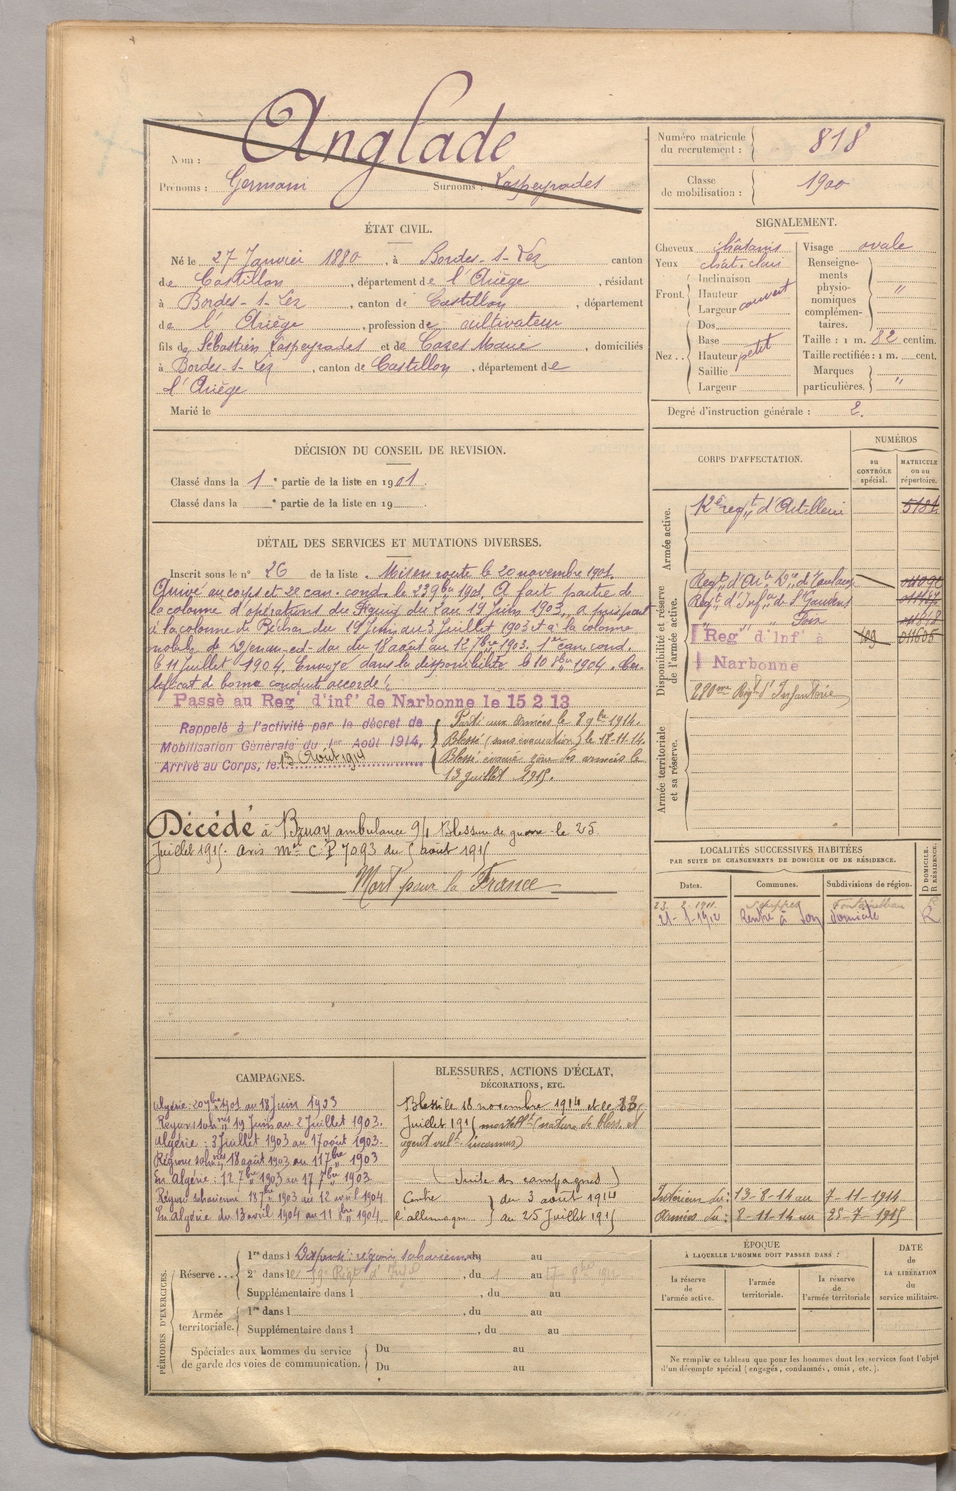 Nom : Anglade
Prénoms : Germain Surnoms : Laspeyrades
Numéro matricule du recrutement : 818
Classe de mobilisation : 1900
ÉTAT CIVIL.
Né le 27 Janvier 1880, à Bordes-s-Lez canton
de Castillon, département de l'Ariège, résidant
à Bordes-s-Lez, canton de Castillon, département
de l'Ariège, profession de cultivateur
fils de Sébastien Laspeyrades et de Cazes Marie, domiciliés
à Bordes-s-Lez, canton de Castillon, département de
l'Ariège
Marié le
SIGNALEMENT.
Cheveux châtains
Yeux chat. clair
Front. Inclinaison
Hauteur couvert
Largeur
Nez.. Dos
Base
Hauteur petit
Saillie
Largeur
Visage ovale
Renseignements physionomiques complémentaires. "
Taille : 1 m. 82 centim.
Taille rectifiée : 1 m. cent.
Marques particulières. "
Degré d'instruction générale : 2.
DÉCISION DU CONSEIL DE REVISION.
Classé dans la 1e partie de la liste en 1901.
Classé dans la e partie de la liste en 19
DÉTAIL DES SERVICES ET MUTATIONS DIVERSES.
Inscrit sous le n° 26 de la liste. Mis en route le 20 novembre 1901.
Arrivé au corps et 2e can. cond. le 23 9bre 1901. A fait partie de
la colonne d'opérations du Figuig du 2 au 19 Juin 1903, a participé
à la colonne de Béchar du 19 Juin au 3 Juillet 1903 et à la colonne
mobile de du 18 août au 12 7bre 1903. 1er can. cond.
le 11 Juillet 1904. Envoyé dans la disponibilité le 10 1904. Cer-
tificat de bonne conduite accordé.
Passé au Reg' d'inf' de Narbonne le 15.2.13
Rappelé à l'activité par le décret de
Mobilisation Générale du 1er Août 1914,
Arrivé au Corps, le 13 Août 1914
Parti aux armées le 8 9bre 1914.
Blessé (sans évacuation) le 18-11-14.
Blessé évacué zone des armées le
13 juillet 1915.
Décédé à Bruay ambulance 9/1 Blessures de guerre le 25
Juillet 1915. avis mel C.P 7093 du 5 août 1915
Mort pour la France
CORPS D'AFFECTATION.
NUMÉROS
au CONTRÔLE spécial.
MATRICULE ou au répertoire.
Armée active.
12e regt d'Artillerie
Disponibilité et réserve de l'armée active.
Regt d'Art. de Toulouse
Regt d'Inf. de St Gaudens
" " Foix
Reg' d'Inf' à
Narbonne
280me Régt d'Infanterie
Armée territoriale et sa réserve.
LOCALITÉS SUCCESSIVES HABITÉES
PAR SUITE DE CHANGEMENTS DE DOMICILE OU DE RÉSIDENCE.
Dates. Communes. Subdivisions de région. D DOMICILE. R RÉSIDENCE.
23. 2. 1911. Fontainebleau
21-1-1912 Rentré à son domicile R
CAMPAGNES.
Algérie : 20 9bre 1901 au 18 Juin 1903
Régions sahnes 19 Juin au 2 Juillet 1903.
Algérie : 3 Juillet 1903 au 17 août 1903.
Régions sahnes 18 août 1903 au 11 7bre 1903
En Algérie : 12 7bre 1903 au 17 7bre 1903
Région saharienne 18 7bre 1903 au 12 avril 1904.
En Algérie du 13 avril 1904 au 11 bre 1904.
BLESSURES, ACTIONS D'ÉCLAT,
DÉCORATIONS, ETC.
Blessé le 18 novembre 1914 et le 13
Juillet 1915 mortellt (nature de bless. et
agent vult inconnus)
(Suite des campagnes)
Contre } du 3 août 1914
l'allemagne } au 25 Juillet 1915
Intérieur du : 13-8-14 au 7-11-1914
Armées du : 8-11-14 au 25-7-1915
PÉRIODES D'EXERCICES.
Réserve... 1re dans l Dispensé : région saharienne, du au
2e dans l , du 1 au 17
Supplémentaire dans l , du au
Armée territoriale. 1re dans l , du au
Supplémentaire dans l , du au
Spéciales aux hommes du service de garde des voies de communication. Du au
Du au
ÉPOQUE
À LAQUELLE L'HOMME DOIT PASSER DANS :
la réserve de l'armée active.
l'armée territoriale.
la réserve de l'armée territoriale
DATE de LA LIBÉRATION du service militaire.
Ne remplir ce tableau que pour les hommes dont les services font l'objet
d'un décompte spécial (engagés, condamnés, omis, etc.).